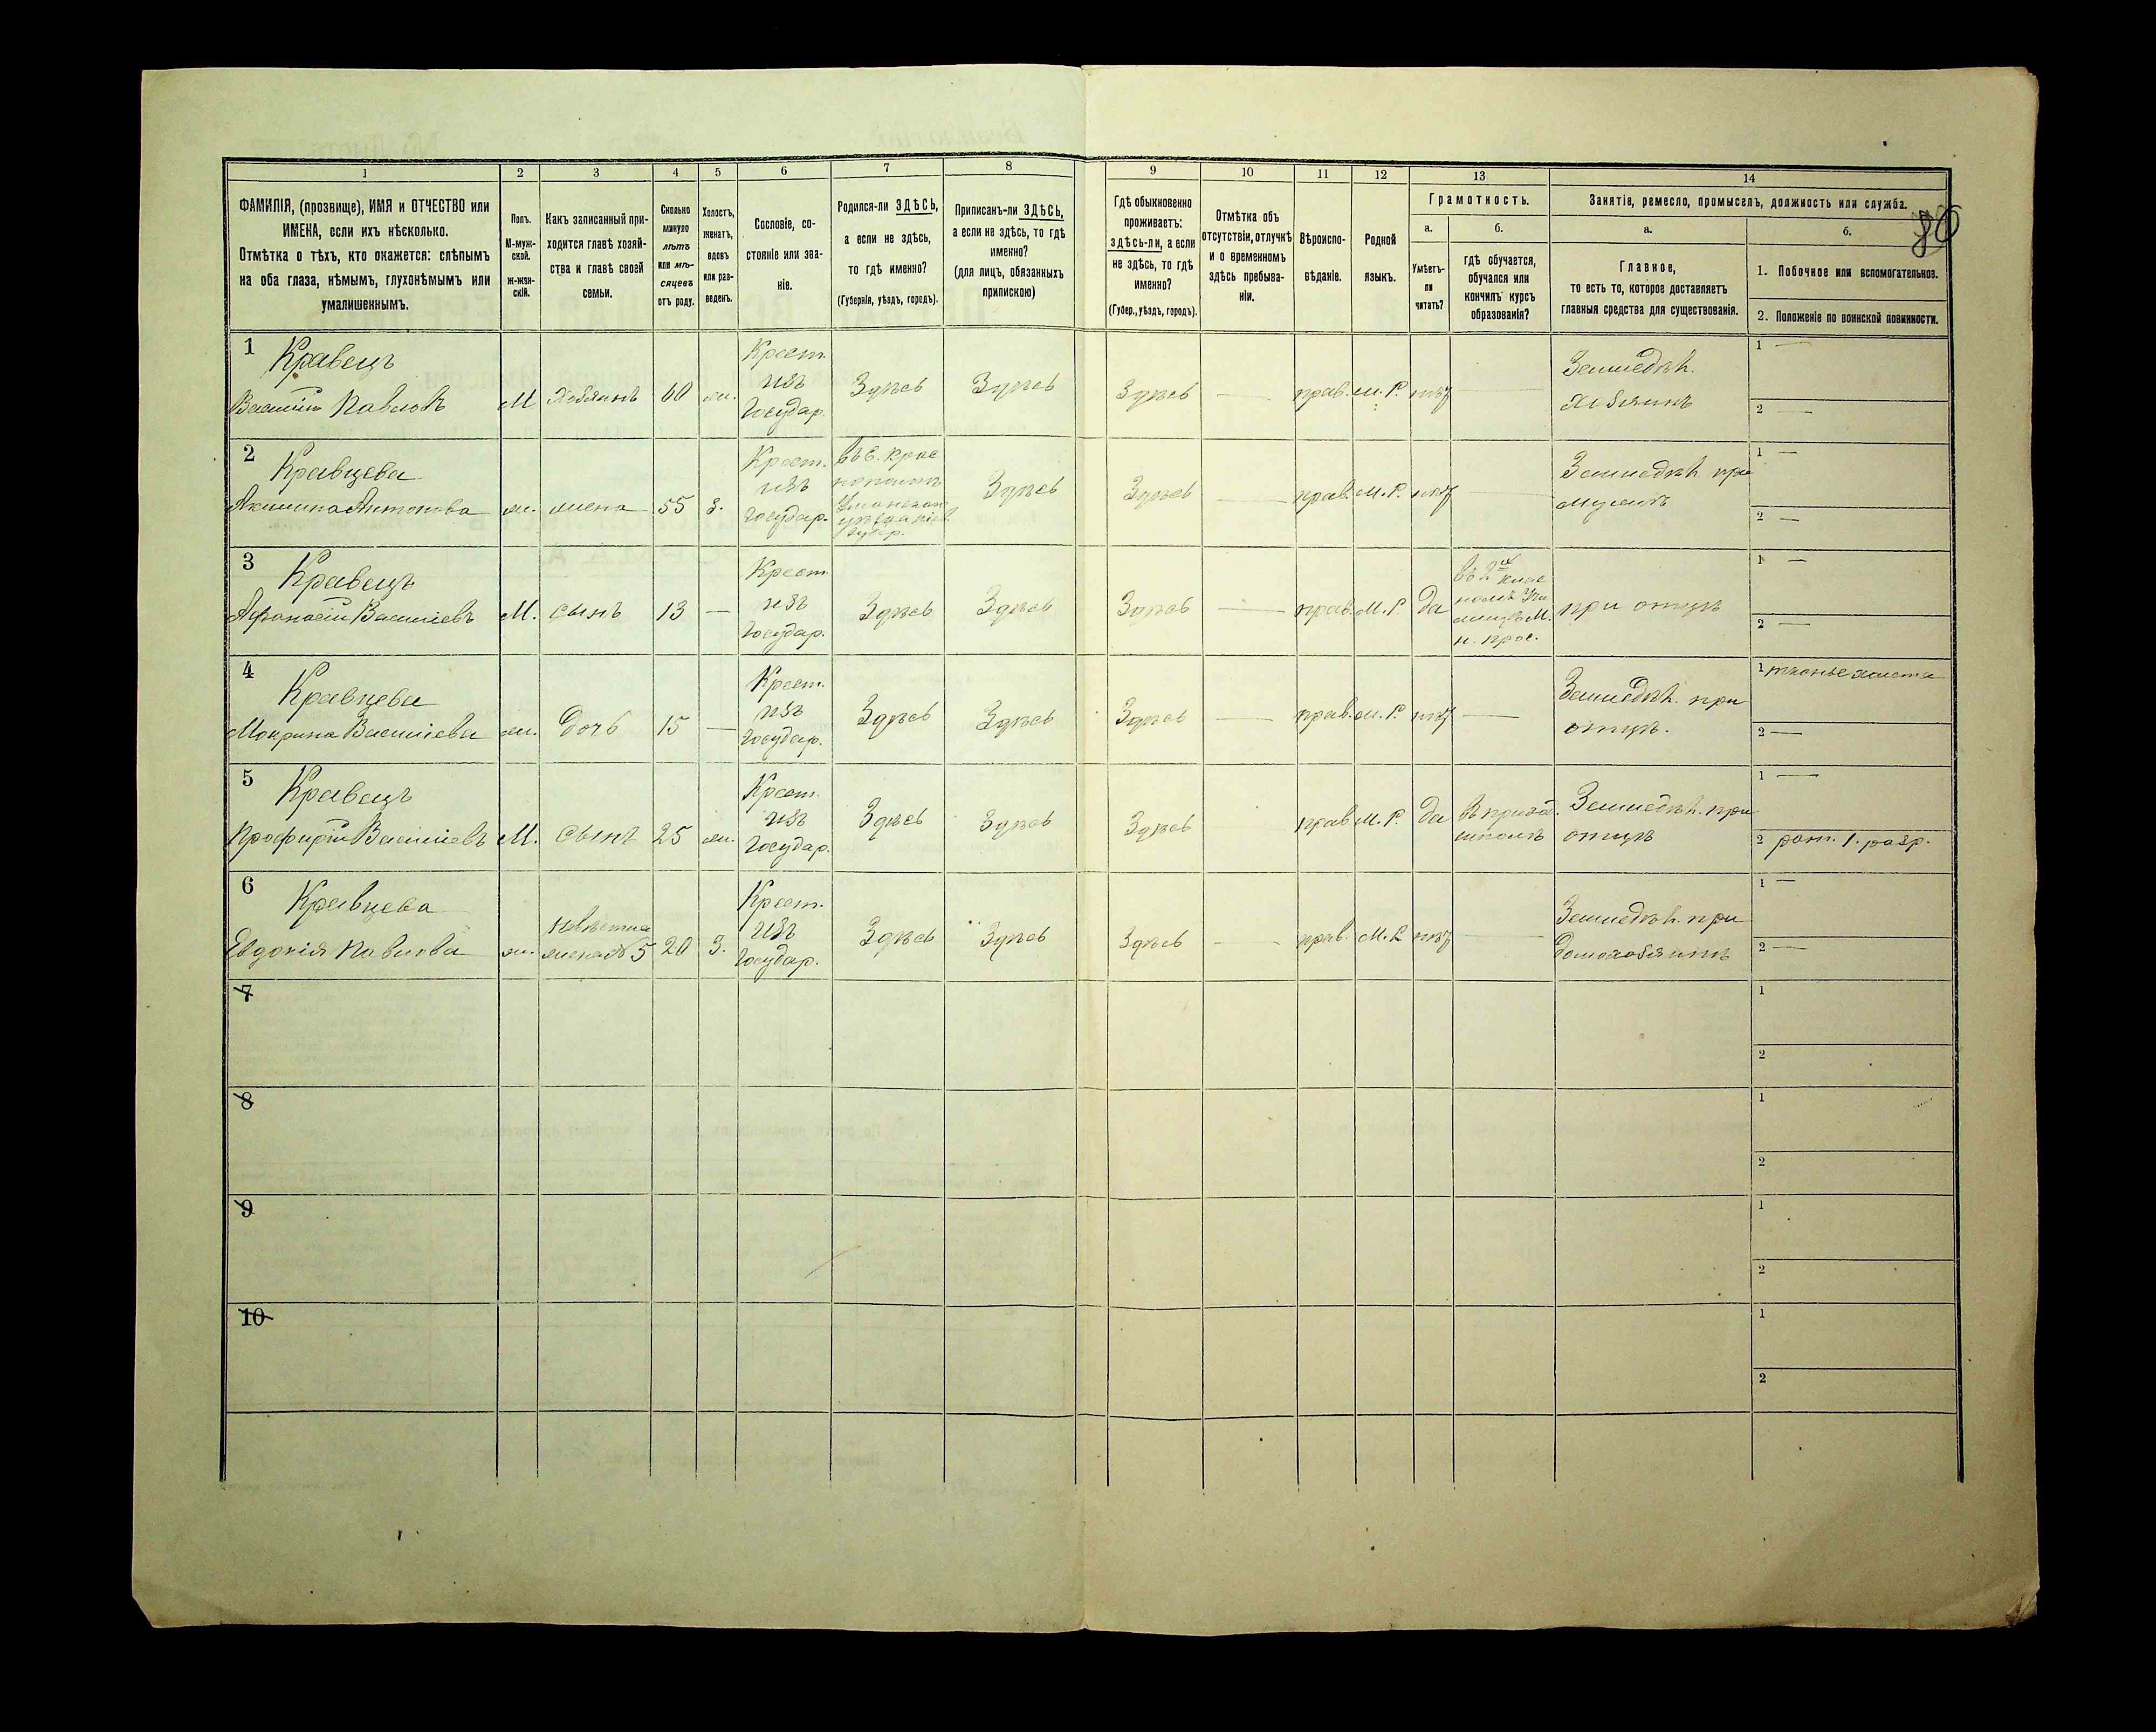 80
1
2
3
4
5
6
7
8
9
10
11
12
13
14
ФАМИЛІЯ, (прозвище), ИМЯ и ОТЧЕСТВО или
ИМЕНА, если ихъ нѣсколько.
Отмѣтка о тѣхъ, кто окажется: слѣпымъ
на оба глаза, нѣмымъ, глухонѣмымъ или
умалишеннымъ.
Полъ.
М-муж-
ской.
ж-жен-
скій.
Какъ записанный при-
ходится главѣ хозяй-
ства и главѣ своей
семьи.
Сколько
минуло
лѣтъ
или мѣ-
сяцевъ
отъ роду.
Холостъ,
женатъ,
вдовъ
или раз-
веденъ.
Сословіе, со-
стояніе или зва-
ніе.
Родился-ли ЗДѢСЬ,
а если не здѣсь,
то гдѣ именно?
(Губернія, уѣздъ, городъ).
Приписанъ-ли ЗДѢСЬ,
а если не здѣсь, то гдѣ
именно?
(для лицъ, обязанныхъ
припискою)
Гдѣ обыкновенно
проживаетъ:
здѣсь-ли, а если
не здѣсь, то гдѣ
именно?
(Губер., уѣздъ, городъ).
Отмѣтка объ
отсутствіи, отлучкѣ
и о временномъ
здѣсь пребыва-
ніи.
Вѣроиспо-
вѣданіе.
Родной
языкъ.
Грамотность.
а.
Умѣетъ-
ли
читать?
б.
гдѣ обучается,
обучался или
кончилъ курсъ
образованія?
Занятіе, ремесло, промыселъ, должность или служба.
а.
Главное,
то есть то, которое доставляетъ
главныя средства для существованія.
б.
1. Побочное или вспомогательное.
2. Положеніе по воинской повинности.
1
Кравецъ
Василій Павловъ
М
Хозяинъ
60
ж.
Крест.
изъ
Государ.
Здѣсь
Здѣсь
Здѣсь
—
прав.
М. Р.
нѣт
—
Земледѣл.
Хозяинъ
1 —
2 —
2
Кравцева
Акилина Антонова
ж.
жена
55
з.
Крест.
изъ
Государ.
въ с. Крас
Уманскаго
уѣзда Кіев.
Губер.
Здѣсь
Здѣсь
—
прав.
М. Р.
нѣт
—
Земледѣл. при
мужѣ
1 —
2 —
3
Кравецъ
Афанасій Василіевъ
М.
сынъ
13
—
Крест.
изъ
Государ.
Здѣсь
Здѣсь
Здѣсь
—
прав.
М. Р.
да
въ 2х клас
номъ Учи
лищѣ М.
н. прос.
при отцѣ
1 —
2 —
4
Кравцева
Мокрина Василіева
ж.
дочь
15
—
Крест.
изъ
Государ.
Здѣсь
Здѣсь
Здѣсь
—
прав.
М. Р.
нѣт
—
Земледѣл. при
отцѣ.
1 тканье холста
2 —
5
Кравецъ
Профирій Василіевъ
М.
сынъ
25
ж.
Крест.
изъ
Государ.
Здѣсь
Здѣсь
Здѣсь
прав
М. Р.
да
въ приход.
школѣ
Земледѣл. при
отцѣ
1 —
2 рат. 1. разр.
6
Кравцева
Евдокія Павлова
ж.
невѣстка
жена №5
20
З.
Крест.
изъ
Государ.
Здѣсь
Здѣсь
Здѣсь
—
прав.
М. Р.
нѣт
—
Земледѣл. при
домохозяинѣ
1 —
2 —
7
1
2
8
1
2
9
1
2
10
1
2